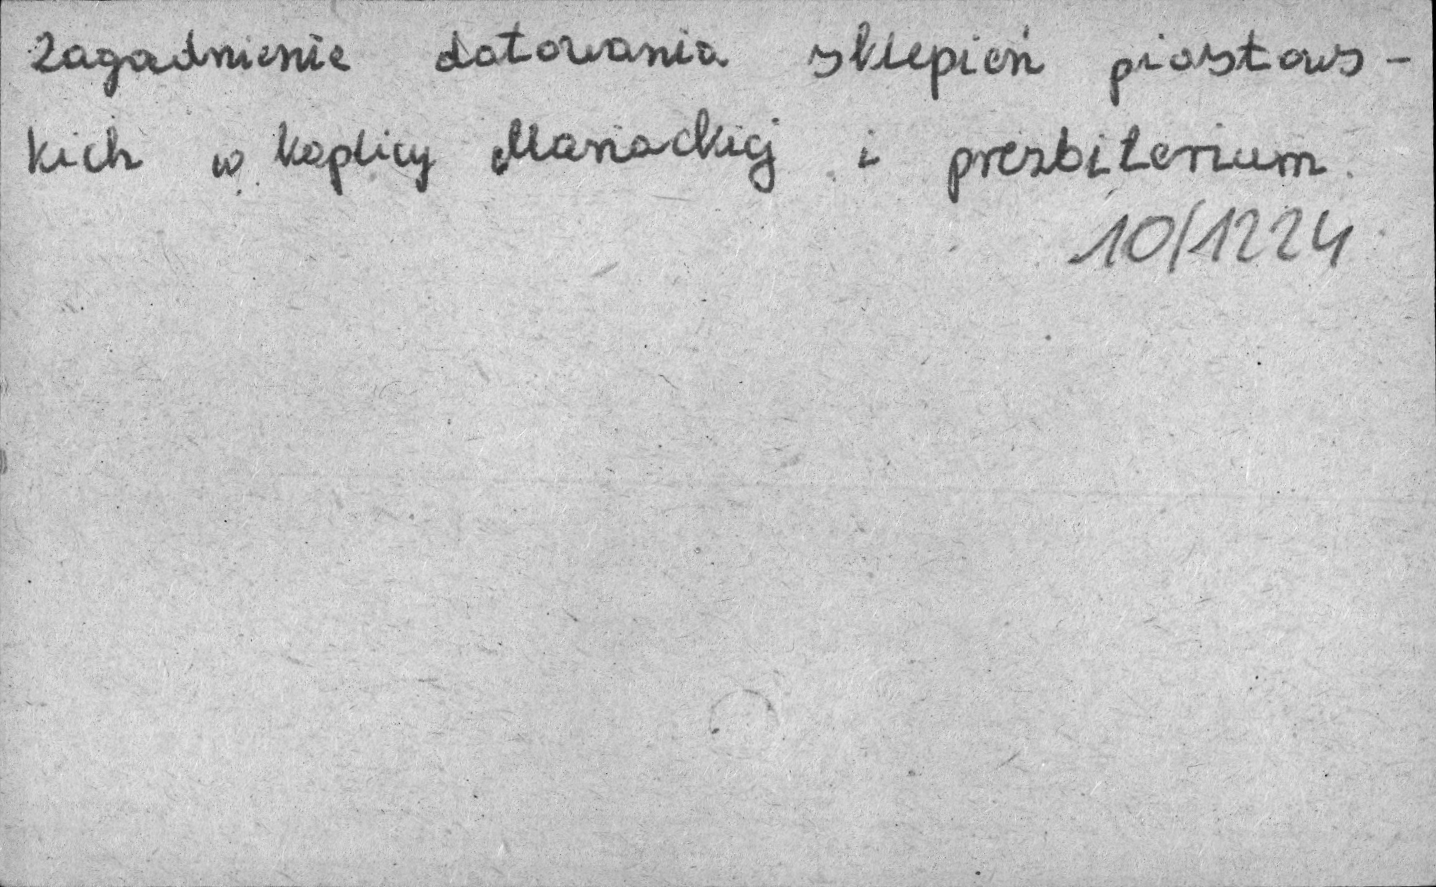 Zagadnienie datowania sklepień piastows-
kich w kaplicy Mariackiej i prezbiterium.
10/1224